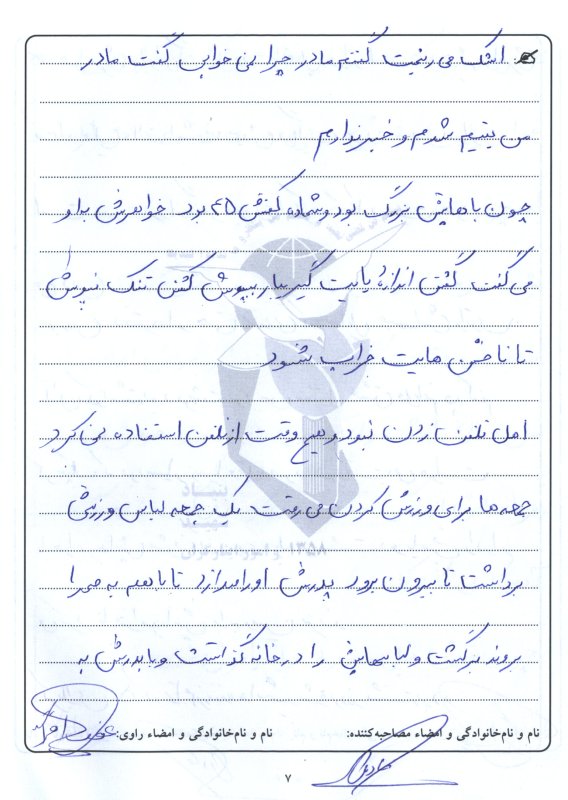 اشک می ریخت گفتم مادر چرا نمی خوابی گفت مادر
من یتیم شدم و خبر ندارم
چون پاهایش بزرگ بود و شماره کفشش ۴۵ بود خواهرش به او
می گفت کفش اندازهٔ پایت گیر بیار بپوش کفش تنگ نپوش
تا ناخن هایت خراب نشود
اهل تلفن زدن نبود و هیچ وقت از تلفن استفاده نمی کرد
جمعه ها برای ورزش کردن می رفت یک جمعه لباس ورزشی
برداشت تا بیرون برود پدرش او را صدا زد تا با هم به صحرا
بروند برگشت و لباسهایش را در خانه گذاشت و با پدرش به
نام و نام‌خانوادگی و امضاء مصاحبه‌کننده: نام و نام‌خانوادگی و امضاء راوی:
۷
بنیاد
شهید
و امور ایثارگران ۱۳۵۸